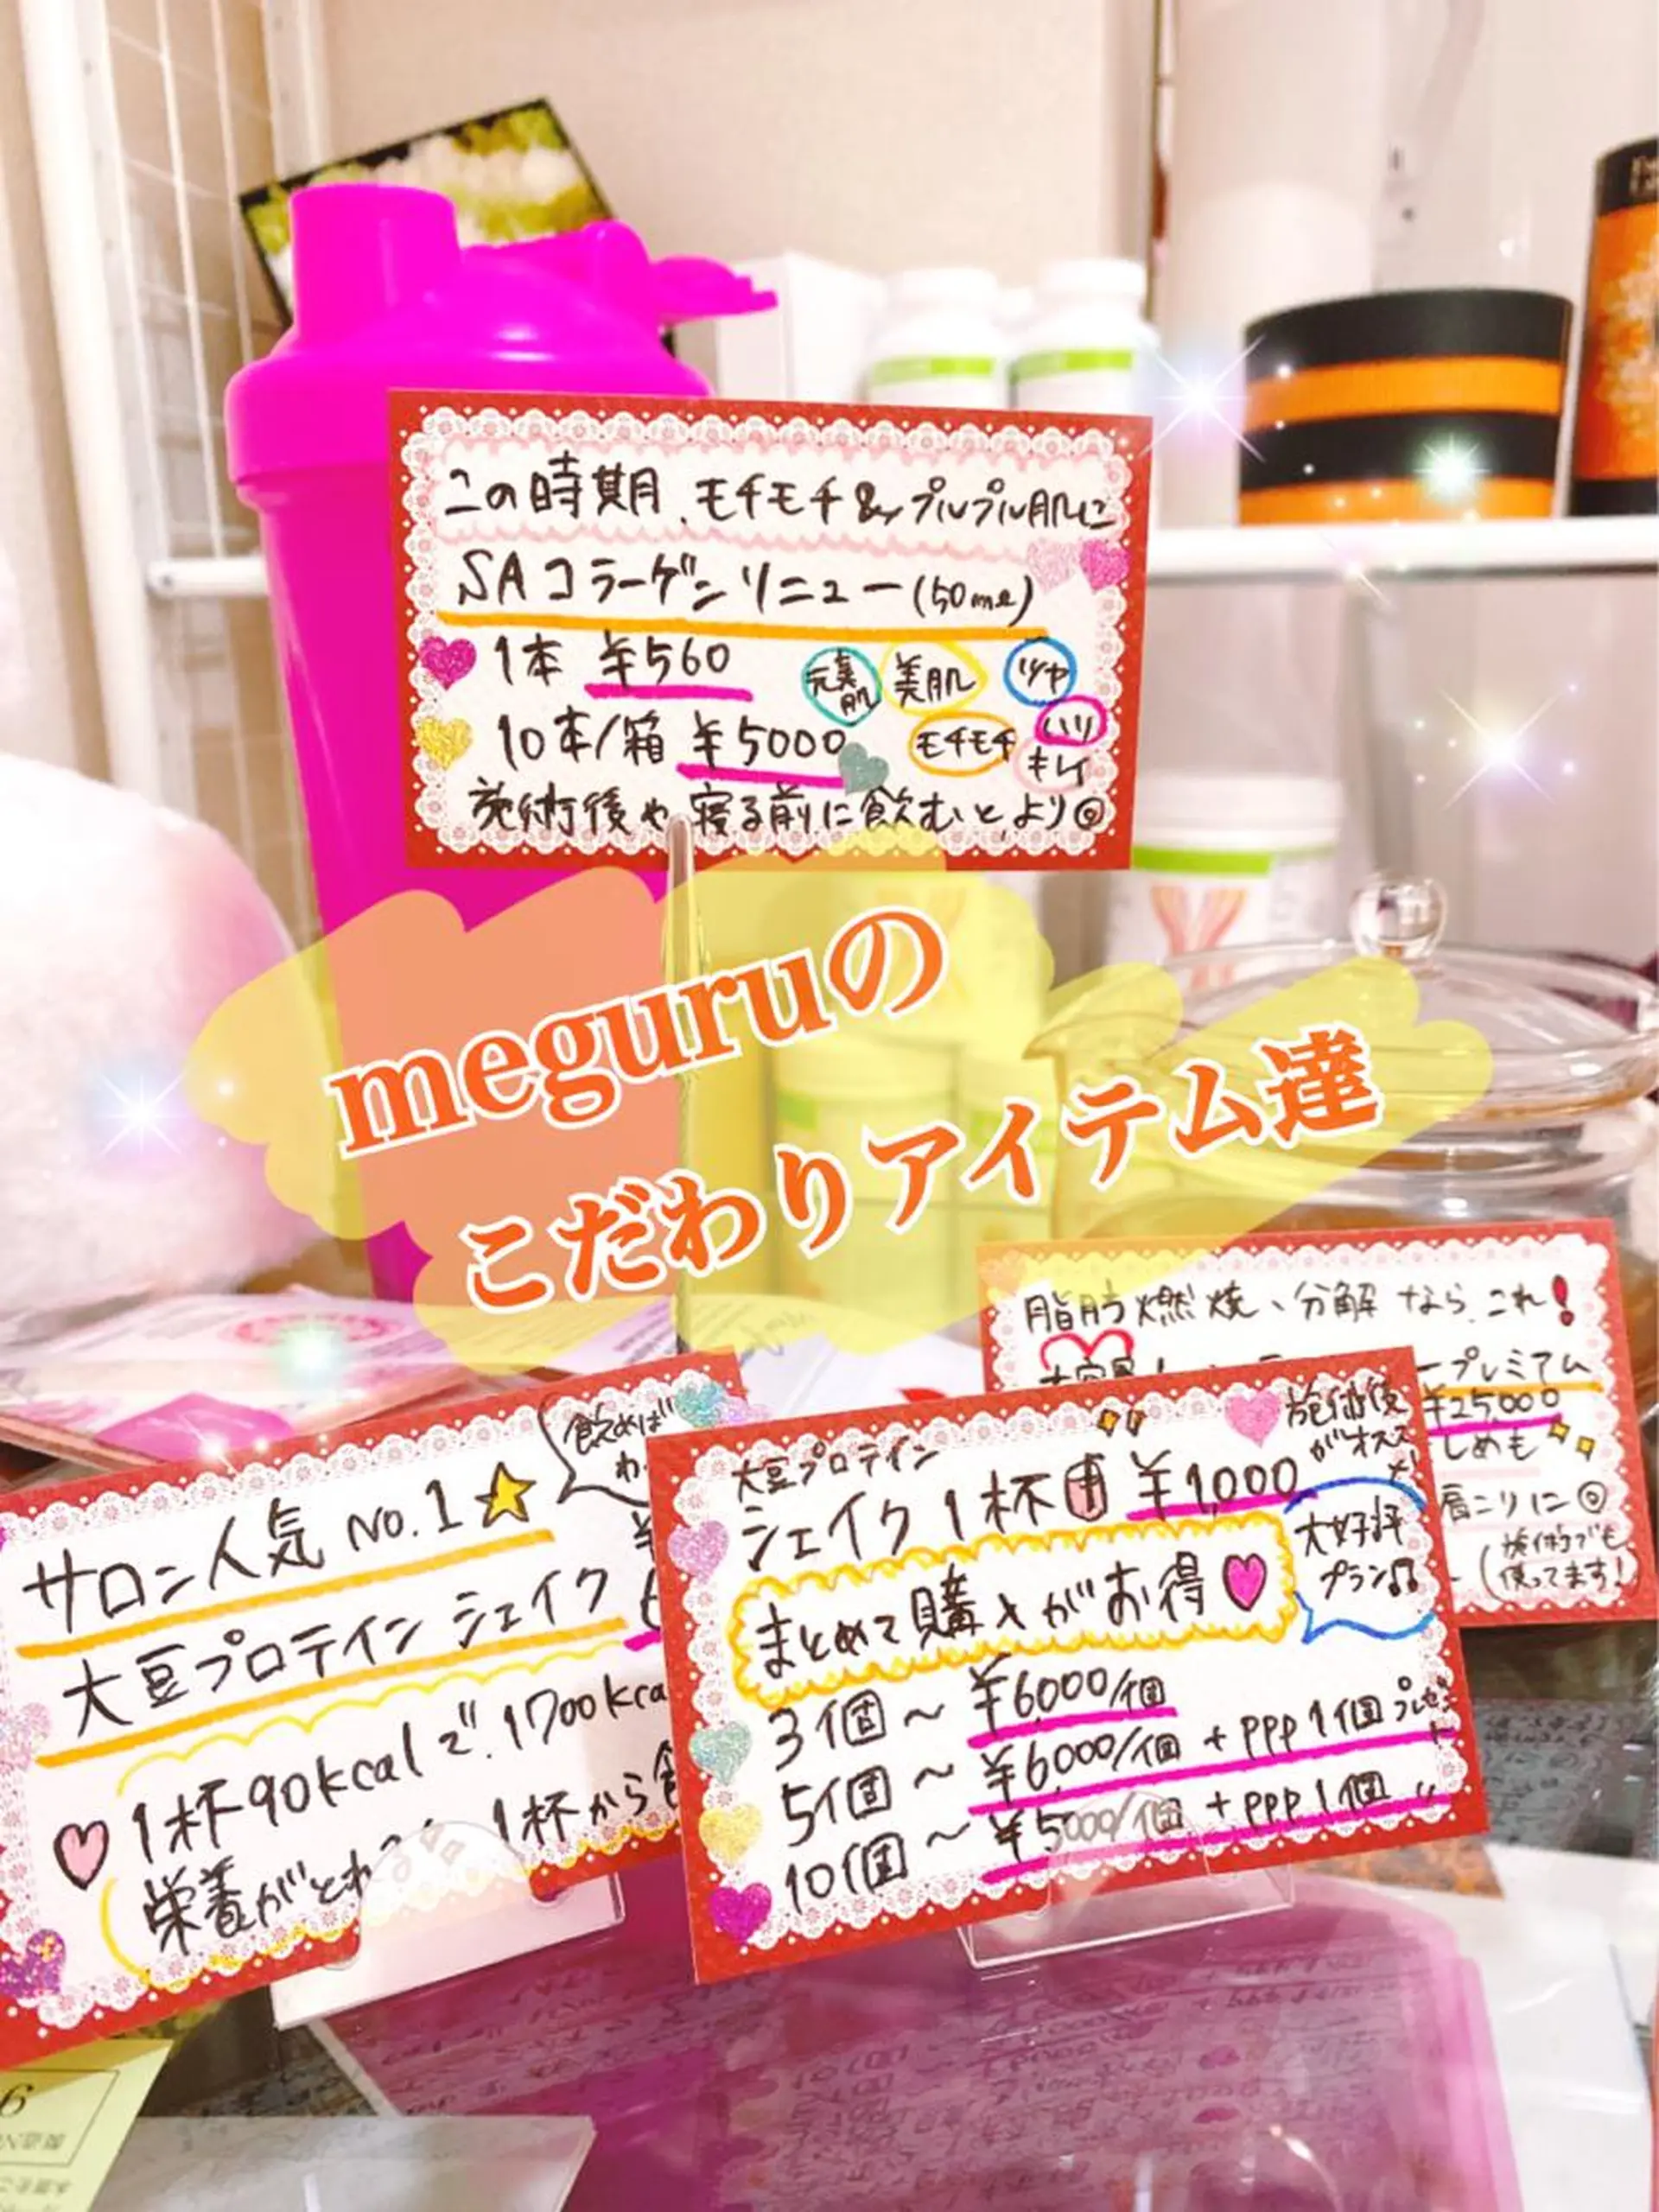 この時期、モチモチ&プルプル肌に
SAコラーゲンリニュー(50ml)
1本 ¥560
元気肌 美肌 ツヤ
10本/箱 ¥5000
モチモチ ハリ
キレイ
施術後や寝る前に飲むとより◎
meguruの
こだわりアイテム達
脂肪燃焼、分解なら、これ!
ープレミアム
¥25,000
しめも
肩こりに◎
施術でも
使ってます!
サロン人気 No.1
飲めば
大豆プロテイン シェイク
1杯90kcalで、1700kca
栄養がとれ
1杯から
大豆プロテイン
シェイク1杯 ¥1,000
施術後
がオススメ!
まとめて購入がお得
大好評
プラン
3個〜¥6,000/個
5個〜¥6,000/個 + ppp1個プレゼント
10個〜¥5,000/個 + ppp1個 〃
6